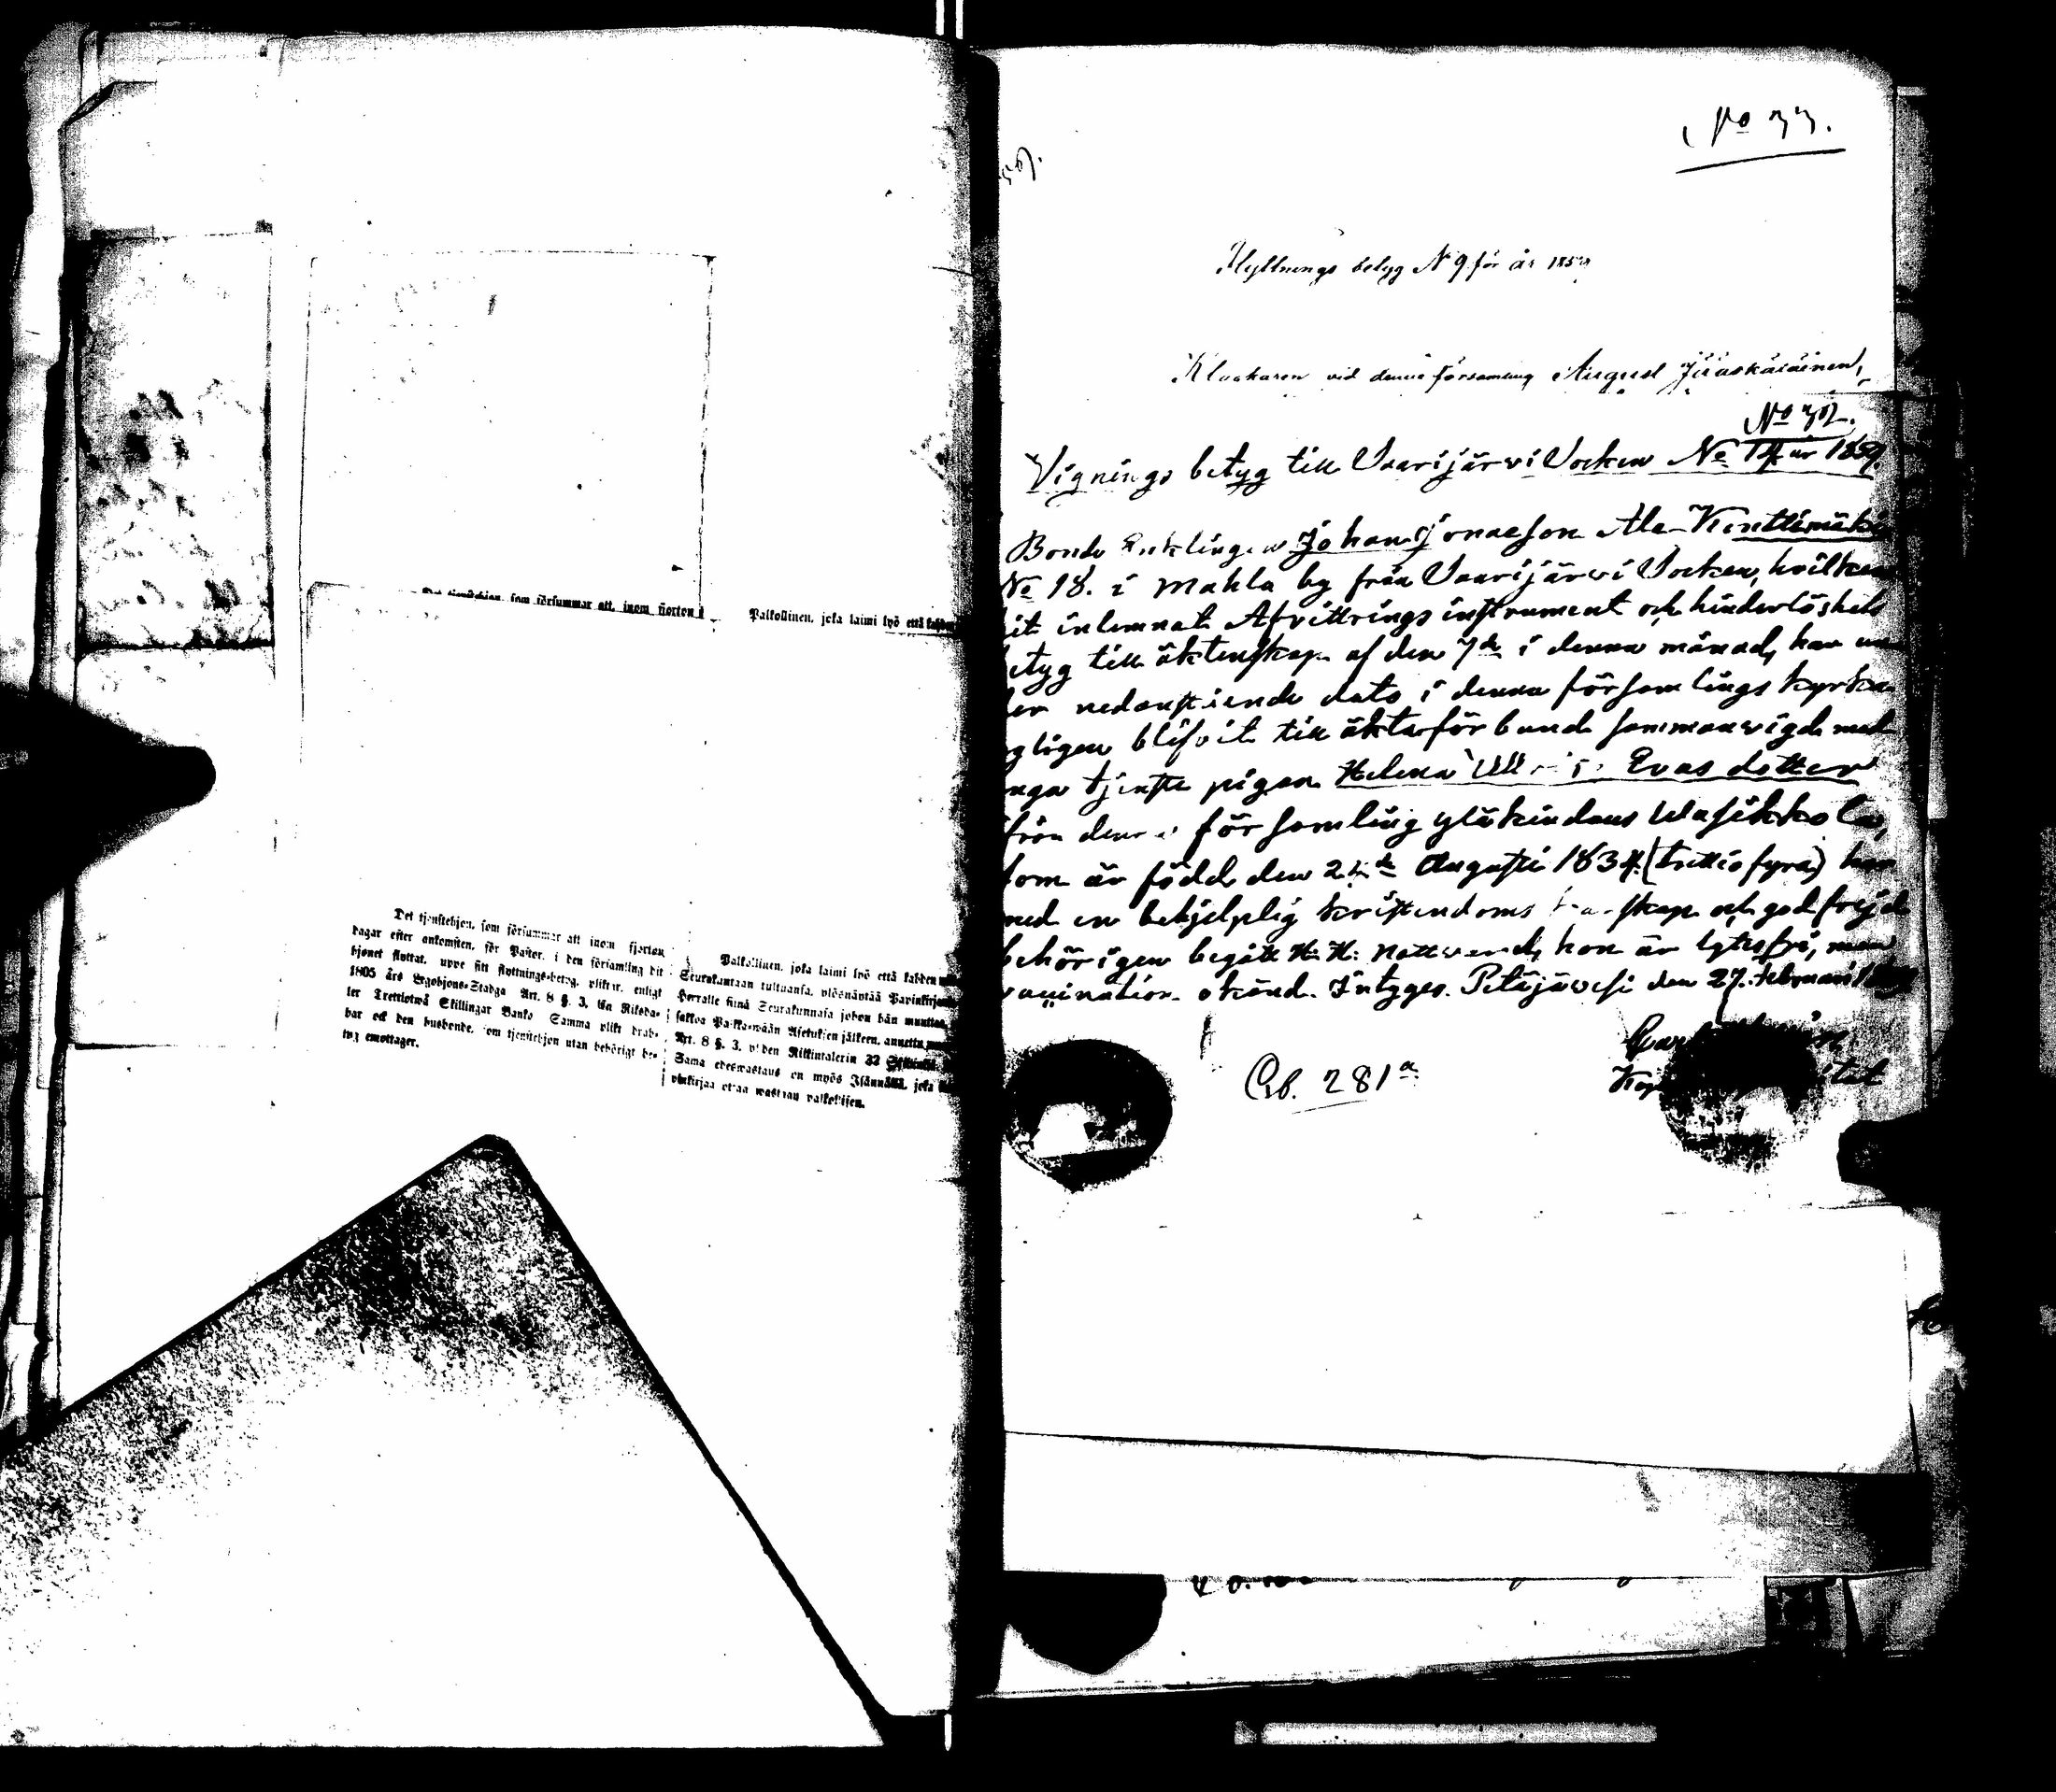 Det tjenstehjon, som försummar att, inom fjorton
Palkollinen, joka laimi lyö että kahden
Det tjenstehjon, som försummar att inom fjorton
dagar efter ankomsten, för Pastor, i den församling dit
hjonet flyttat, uppe sitt flyttnings-betyg, plikte, enligt
1805 års Legohjons-Stadga Art. 8 §. 3. En Riksda-
ler Trettiotwå Skillingar Banko. Samma plikt drab-
bar ock den husbonde, som tjenstehjon utan behörigt be-
tyg emottager.
Palkollinen, joka laimi lyö että kahden
Seurakuntaan tultuansa, ylösnäyttää Papinkirjansa
Herralle siinä Seurakunnasa johon hän muuttaa,
sakkoa Palkkawään Asetuksen jälkeen, annettu
Art. 8 §. 3. yhden Riikintalerin 32 Skillinkiä
Sama edeswastaus on myös Isännällä, joka
pinkirjaa ottaa wastaan palkollisen.
No 33.
Flyttnings betyg N 9 för år 185
Klockaren vid denna församling August Jääskäläinen,
No 32.
Vignings betyg till Saarijärvi Socken No 14 år 1859.
Bonde Enklingen Johan Jonaeson Ala-Kinttimäki
No 18. i Mahla by från Saarijärvi Socken, hvilken
it inlemnat Afvittrings instrument och hinderlöshets
etyg till äktenskap af den 7de i denna månad, har un
der nedanstående dato i denna församlings kyrka
gligen blifvit till äkta förbund sammanvigd med
nga tjenste pigan Helena Ull Evas dotter
från denna församling yläkindans Wasikkola,
som är född den Augusti 1834 (trettiofyra) har
med en behjelplig kristendoms kunskap och god frejd
behörigen begått H. H. Nattvard, hon är lytesfri, men
vaccination okänd. Intygas. Petäjävesi den 27. Februari 1859
Cb. 281 a